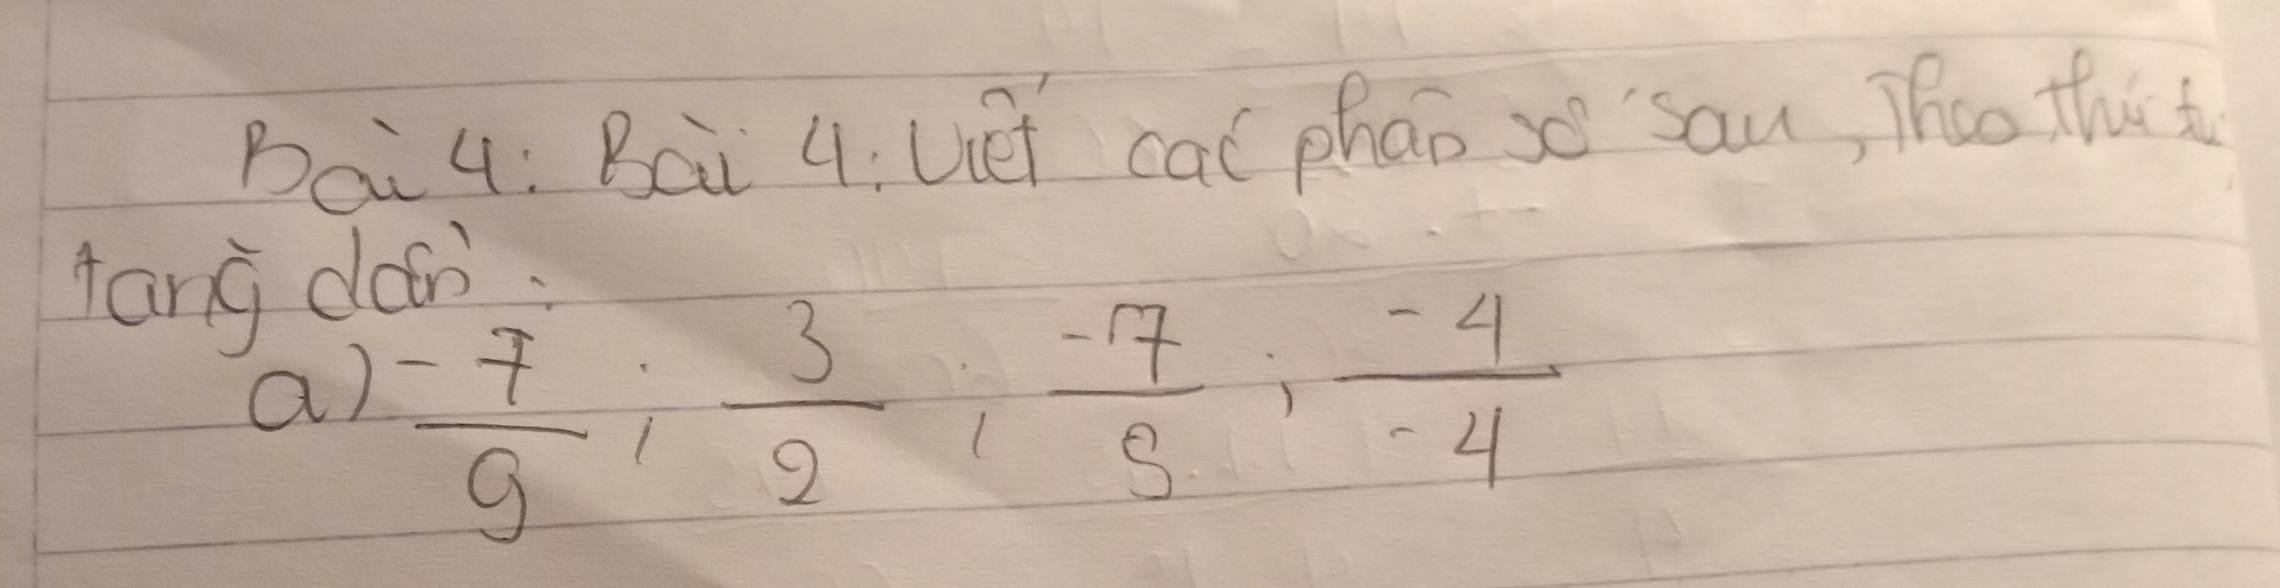 Bài 4: Bài 4: Viết các phân số sau, Theo thứ tự
tăng dần:
a) -7/9 ; 3/2 ; -7/8 ; -4/-4